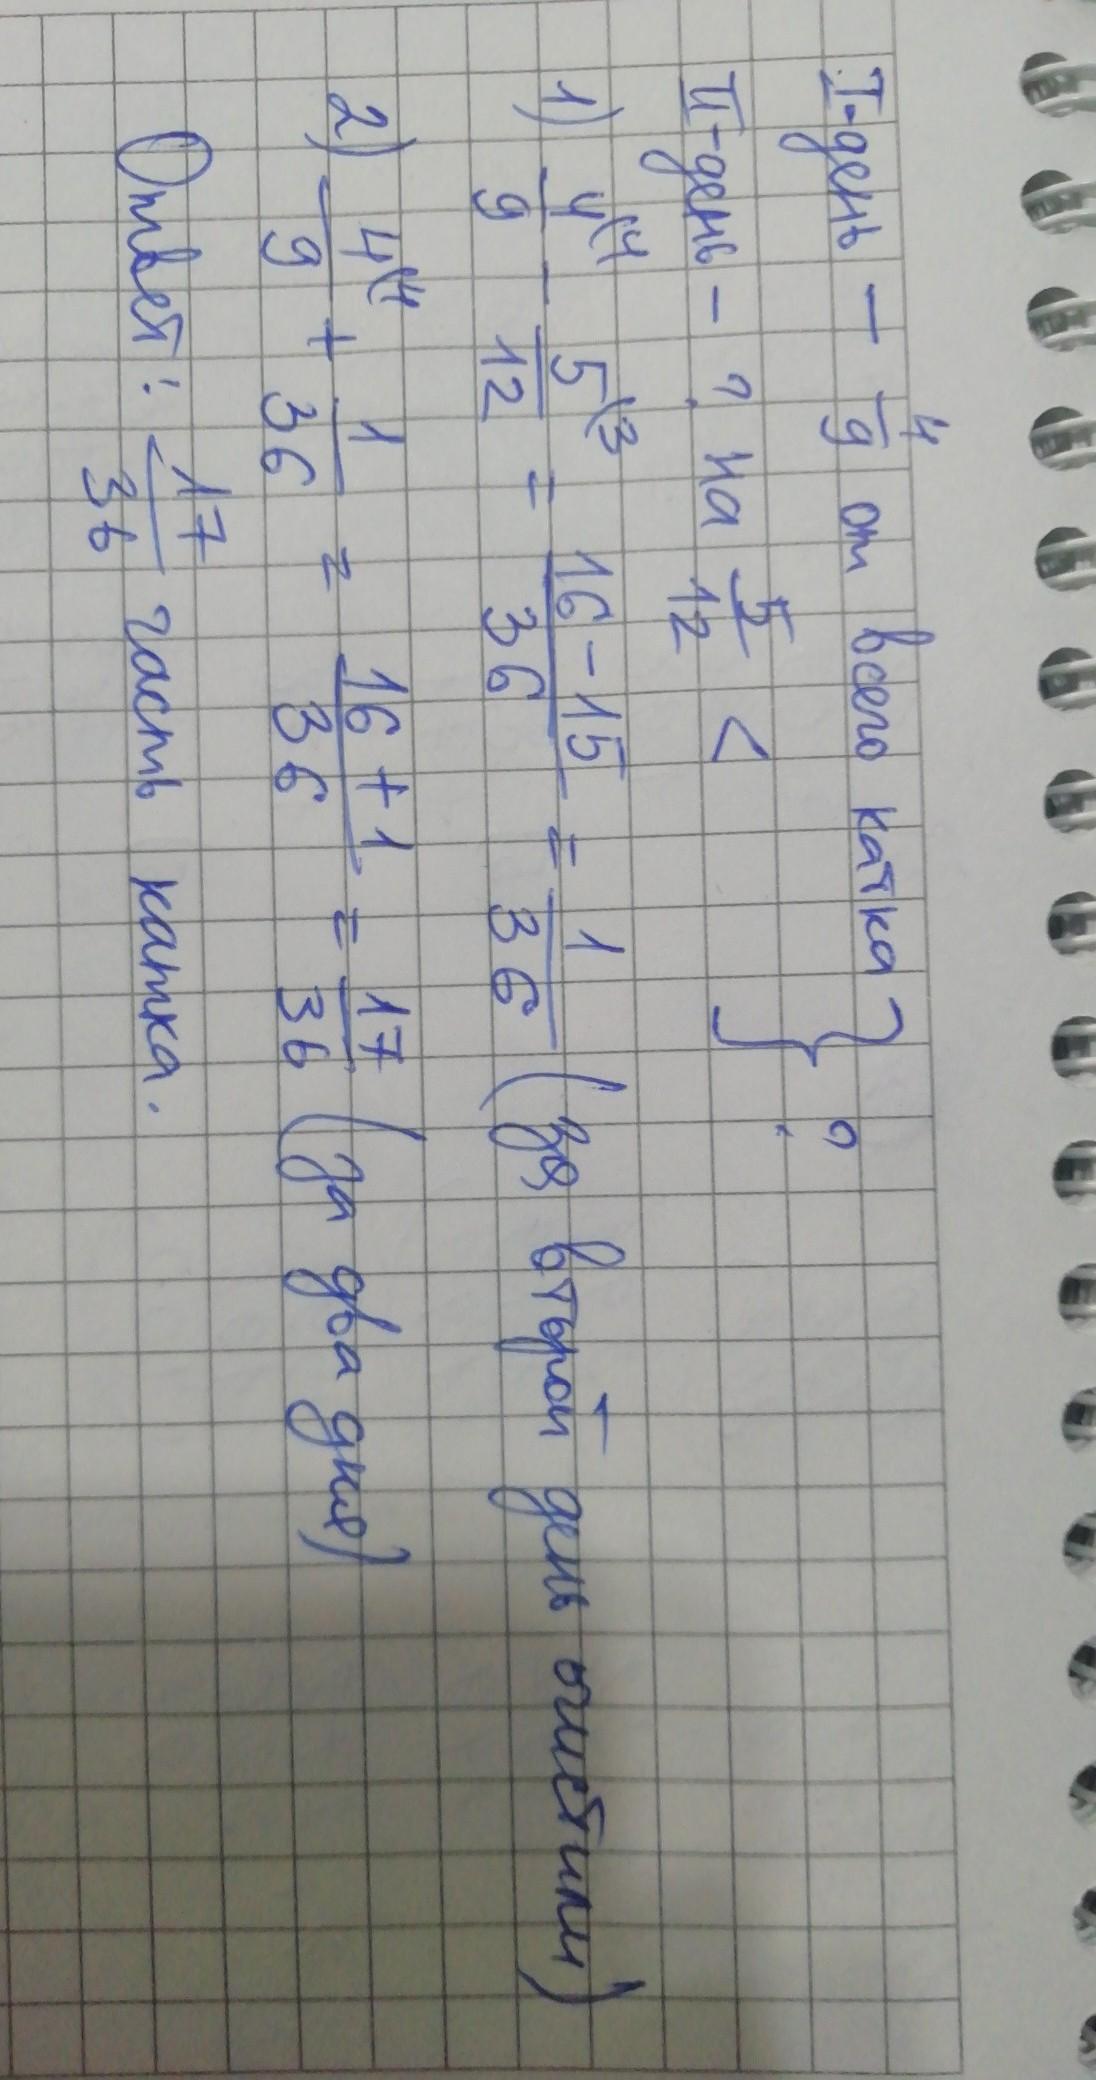 I-день – 4/9 от всего катка } ?
II-день – ? на 5/12 <
1) 4(4/9 – 5(3/12 = 16-15/36 = 1/36 (за второй день очистили)
2) 4(4/9 + 1/36 = 16+1/36 = 17/36 (за два дня)
Ответ: 17/36 часть катка.